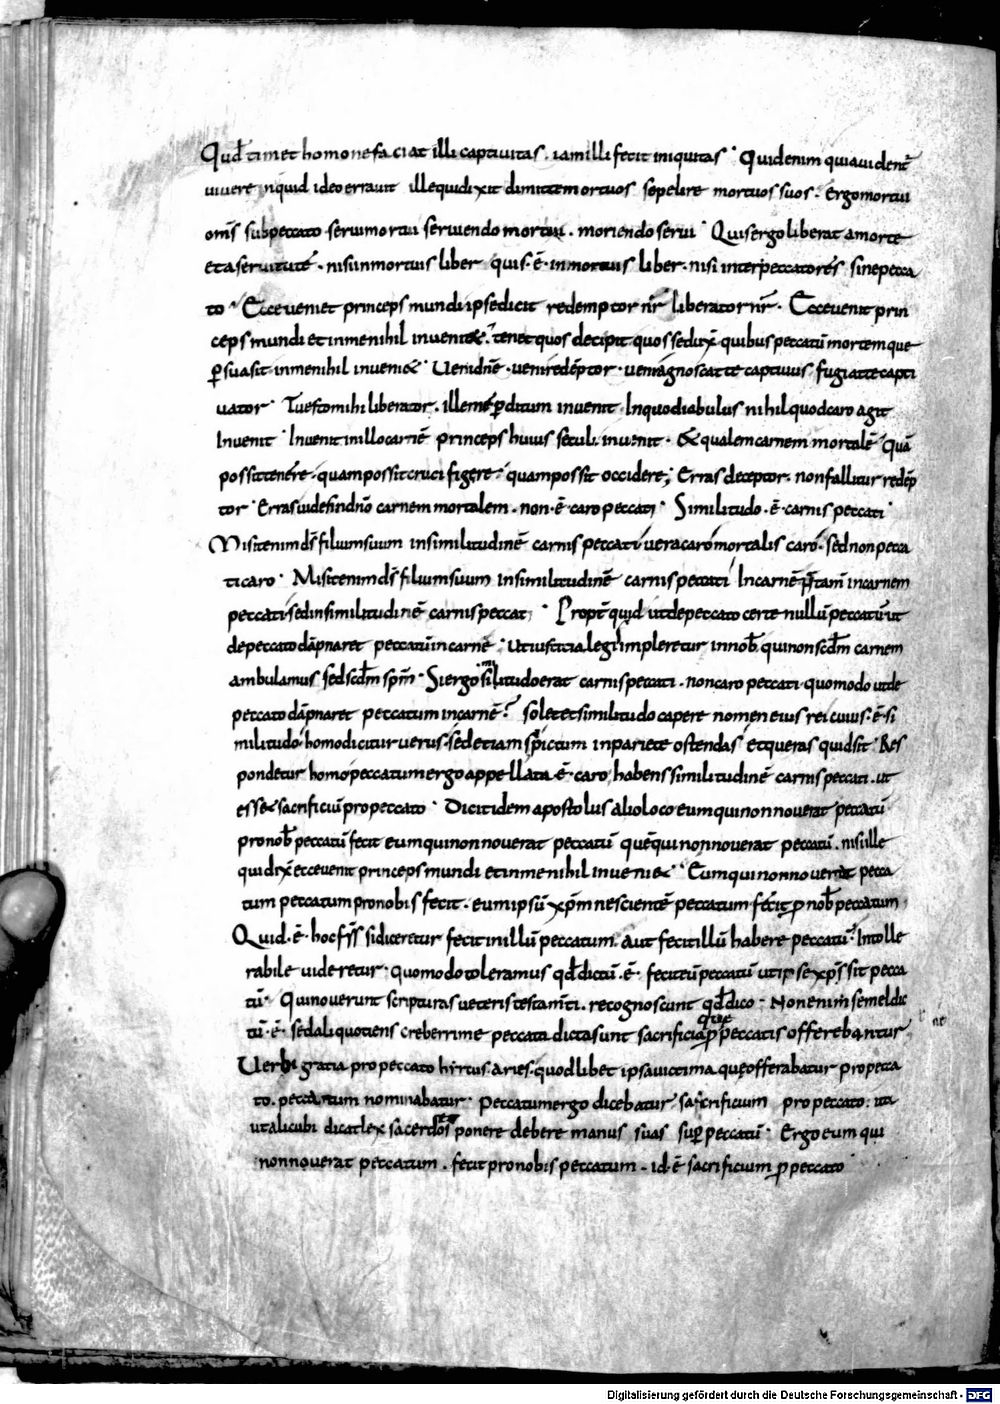 Quod timet homo ne faciat illi captivitas . iam illi fecit iniquitas . Quid enim quia videntᷣ
vivere nquid ideo erravit ille qui dixit dimitte mortuos sepelire mortuos suos . Ergo mortui
om̄s sub peccato servi mortui serviendo mortui . moriendo servi . Quis ergo liberat a morte
et a servitute . nisi in mortuis liber quis . ē . in mortuis liber . nisi inter peccatores sine pecca
to . Ecce veniet princeps mundi ipse dicit redemptor nr̄ liberator nr̄ . Ecce venit prin
ceps mundi et in me nihil inveniet . tenet quos decipit quos seduxͭ quibus peccatū mortemque
ꝑsuasit in me nihil inveniet . Veni dn̄e . veni redēptor . veni agnoscat te captivus fugiat te capti
vator . Tu esto mihi liberator . ille me ꝑditum invenit . In quo diabulus nihil quod caro agit
Invenit . Invenit in illo carnē princeps huius seculi invenit . & qualem carnem mortalē quā
possit tenere . quam possit cruci figere . quam possit occidere ; Erras deceptor . non fallitur redēp
tor . Erras vides in dn̄o carnem mortalem . non . ē . caro peccati . Similitudo . ē . carnis peccati
Misit enim ds̄ filium suum in similitudinē carnis peccati vera caro mortalis caro . sed non pecca
ti caro . Misit enim ds̄ filium suum in similitudinē carnis peccati In carnē p̄stam̄ in carnem
peccati . sed in similitudinē carnis peccati . Propt̄ quid ut de peccato certe nullū peccatū ut
de peccato dāpnaret peccatū in carnē . Ut iustitia legis impleretur in nob̄ . qui non scdm̄ carnem
ambulamus sed scdm̄ spm̄ . Si ergo similitudo erat carnis peccati . non caro peccati . quomodo ut de
peccato dāpnaret peccatum in carnē ? solet et similitudo capere nomen eius rei cuius . ē . si
militudo . homo dicitur verus . sed etiam si pictum in pariete ostendas et queras quid sit . Res
pondetur homo peccatum ergo appellata . ē . caro habens similitudinē carnis peccati . ut
esset sacrificiū pro peccato . Dicit idem apostolus alio loco eum qui non noverat peccatū
pro nob̄ peccatū fecit eum qui non noverat peccatū quē qui non noverat peccatū . nisi ille
qui dix̄ ecce venit princeps mundi et in me nihil inveniet . Eum qui non noverat pecca
tum peccatum pro nobis fecit . eum ipsū xp̄m nescientē peccatum . fecit ꝓ nob̄ peccatum
Quid . ē . hoc frs̄ si diceretur fecit in illū peccatum . aut fecit illū habere peccatū . Intolle
rabile videretur . quomodo toleramus qd̄ dictū . ē . fecit eū peccatū ut ipse xp̄s sit pecca
tū . Qui noverunt scripturas veteris testam̄ti . recognoscunt qd̄ dico . Non enim semel dic
tū . ē . sed aliquotiens creberrime peccata dicta sunt sacrificia que ꝓ peccatis offerebantur
Verbi gratia pro peccato hirtus . aries . quod libet ipsa victima quę offerabatur pro pecca
to . peccatum nominabatur . Peccatum ergo dicebatur sacrificium pro peccato . ita
ut alicubi dicat lex sacerdotes ponere debere manus suas suꝑ peccatū . Ergo eum qui
non noverat peccatum . fecit pro nobis peccatum . id . ē sacrificium ꝓ peccato .
Digitalisierung gefördert durch die Deutsche Forschungsgemeinschaft - DFG